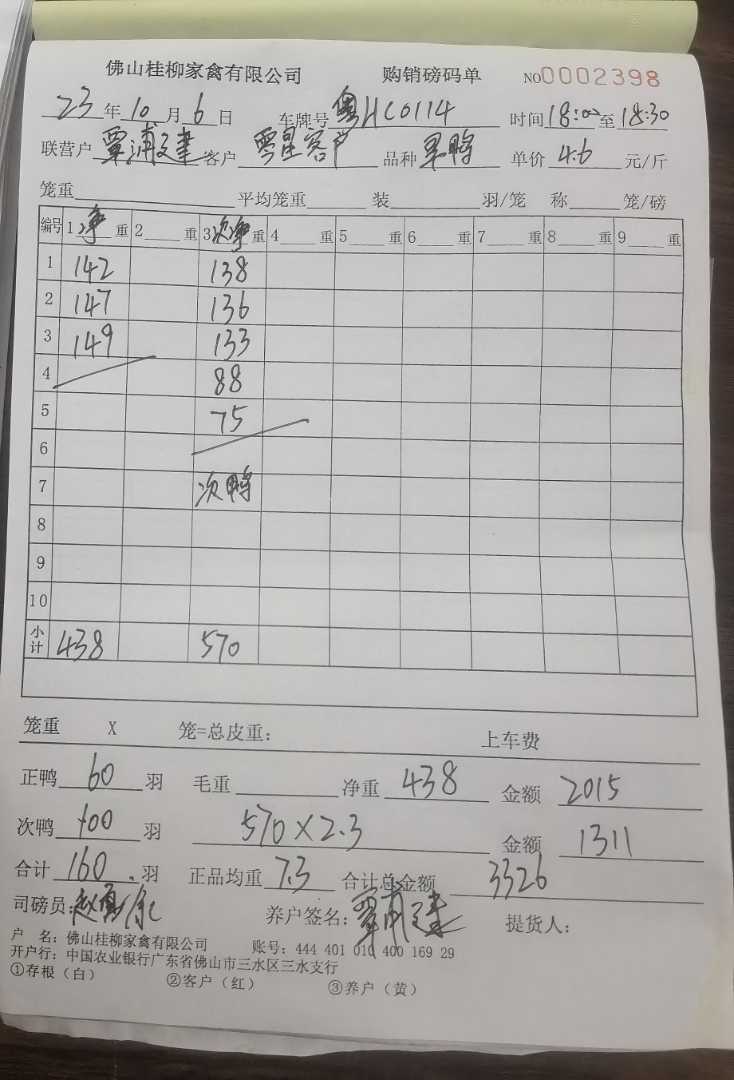 佛山桂柳家禽有限公司 购销磅码单 NO0002398
23年10月6日 车牌号粤HC0114 时间18:00至18:30
联营户覃浦建 客户零星客户 品种黑鸭 单价4.6元/斤
笼重 平均笼重 装 羽/笼 称 笼/磅
编号 1净重 2 重 3次净重 4 重 5 重 6 重 7 重 8 重 9 重
1 142 138
2 147 136
3 149 133
4 88
5 75
6
7 次鸭
8
9
10
小计 438 570
笼重 X 笼=总皮重: 上车费
正鸭60羽 毛重 净重438 金额2015
次鸭100羽 570×2.3 金额1311
合计160.羽 正品均重7.3 合计总金额3326
司磅员: 养户签名:覃浦建 提货人:
户 名:佛山桂柳家禽有限公司 账号:444 401 010 400 169 29
开户行:中国农业银行广东省佛山市三水区三水支行
①存根(白) ②客户(红) ③养户(黄)